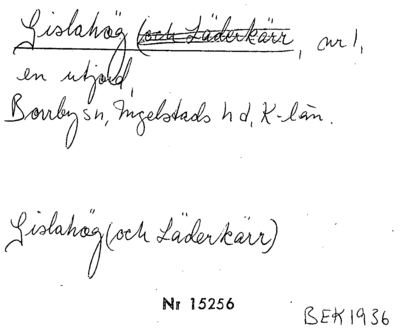 Gislahög (och Läderkärr, nr 1,
en utjord,
Borrby sn, Ingelstads hd, K-län.
Gislahög (och Läderkärr)
Nr 15256
BEK 1936